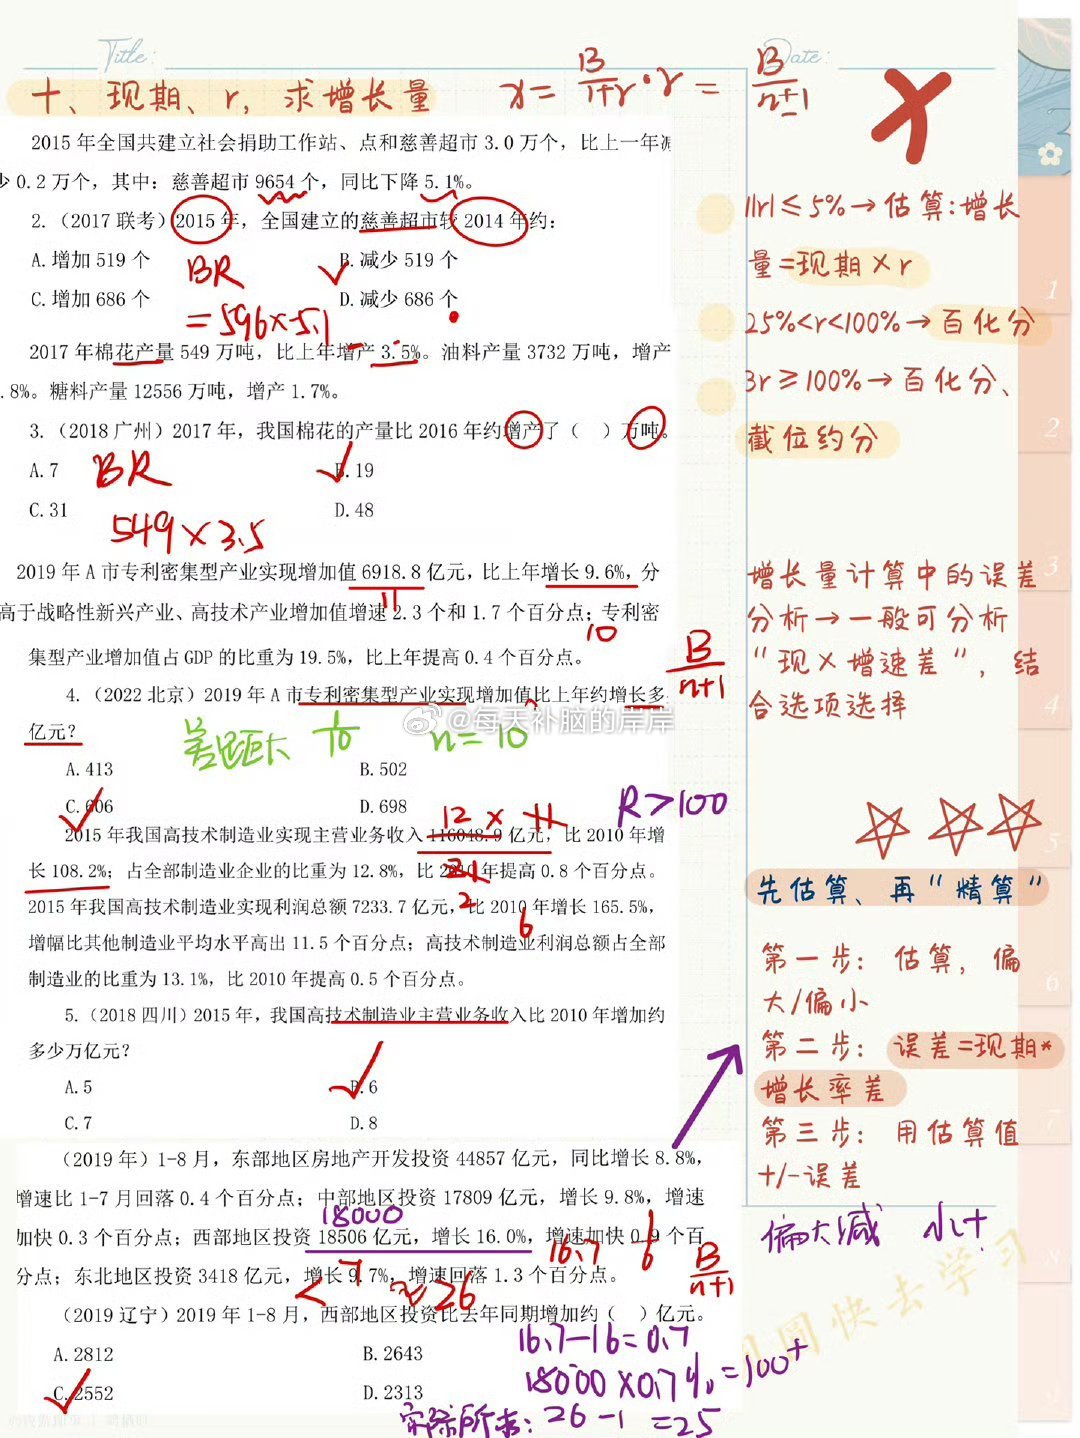 Title:
Date:
十、现期、r，求增长量
x = B/1+r · r = B/n+1
2015 年全国共建立社会捐助工作站、点和慈善超市 3.0 万个，比上一年减
少 0.2 万个，其中：慈善超市 9654 个，同比下降 5.1%。
2.（2017 联考）2015 年，全国建立的慈善超市较 2014 年约：
A. 增加 519 个
B. 减少 519 个
C. 增加 686 个
D. 减少 686 个
BR
= 596×5.1
2017 年棉花产量 549 万吨，比上年增产 3.5%。油料产量 3732 万吨，增产
.8%。糖料产量 12556 万吨，增产 1.7%。
3.（2018 广州）2017 年，我国棉花的产量比 2016 年约增产了（ ）万吨。
A. 7
B. 19
C. 31
D. 48
BR
549×3.5
2019 年 A 市专利密集型产业实现增加值 6918.8 亿元，比上年增长 9.6%，分
高于战略性新兴产业、高技术产业增加值增速 2.3 个和 1.7 个百分点；专利密
集型产业增加值占 GDP 的比重为 19.5%，比上年提高 0.4 个百分点。
11
10
B/n+1
4.（2022 北京）2019 年 A 市专利密集型产业实现增加值比上年约增长多
亿元？
@每天补脑的岸岸
差距大 1/10 n=10
A. 413
B. 502
C. 606
D. 698
R>100
12 × 11
2015 年我国高技术制造业实现主营业务收入 116048.9 亿元，比 2010 年增
长 108.2%；占全部制造业企业的比重为 12.8%，比 2010 年提高 0.8 个百分点。
21
2015 年我国高技术制造业实现利润总额 7233.7 亿元，比 2010 年增长 165.5%，
2
6
增幅比其他制造业平均水平高出 11.5 个百分点；高技术制造业利润总额占全部
制造业的比重为 13.1%，比 2010 年提高 0.5 个百分点。
5.（2018 四川）2015 年，我国高技术制造业主营业务收入比 2010 年增加约
多少万亿元？
A. 5
B. 6
C. 7
D. 8
（2019 年）1-8 月，东部地区房地产开发投资 44857 亿元，同比增长 8.8%，
增速比 1-7 月回落 0.4 个百分点；中部地区投资 17809 亿元，增长 9.8%，增速
加快 0.3 个百分点；西部地区投资 18506 亿元，增长 16.0%，增速加快 0.9 个百
分点；东北地区投资 3418 亿元，增长 9.7%，增速回落 1.3 个百分点。
18000
16.7 1/6
B/n+1
7
< ≈26
（2019 辽宁）2019 年 1-8 月，西部地区投资比去年同期增加约（ ）亿元。
A. 2812
B. 2643
C. 2552
D. 2313
16.7-16=0.7
18000×0.7%=100+
实际所求：26-1=25
||r|≤5%→估算：增长
量=现期×r
25%<r<100%→百化分
3r≥100%→百化分、
截位约分
增长量计算中的误差
分析→一般可分析
“现×增速差”，结
合选项选择
先估算、再“精算”
第一步：估算，偏
大/偏小
第二步：误差=现期*
增长率差
第三步：用估算值
+/-误差
偏大减 小+
圆快去学习
1
2
3
4
5
6
7
8
9